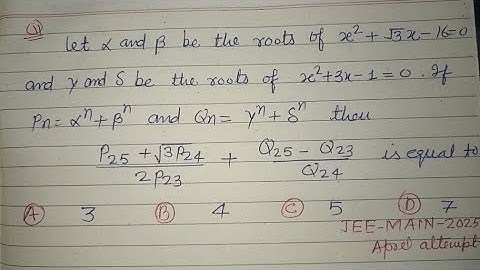 ①
Let α and β be the roots of x² + √3x - 16 = 0
and γ and δ be the roots of x² + 3x - 1 = 0. If
Pn = αⁿ + βⁿ and Qn = γⁿ + δⁿ then
(P25 + √3P24)/(2P23) + (Q25 - Q23)/Q24 is equal to
Ⓐ 3 Ⓑ 4 Ⓒ 5 Ⓓ 7
JEE-MAIN-2025
April attempt